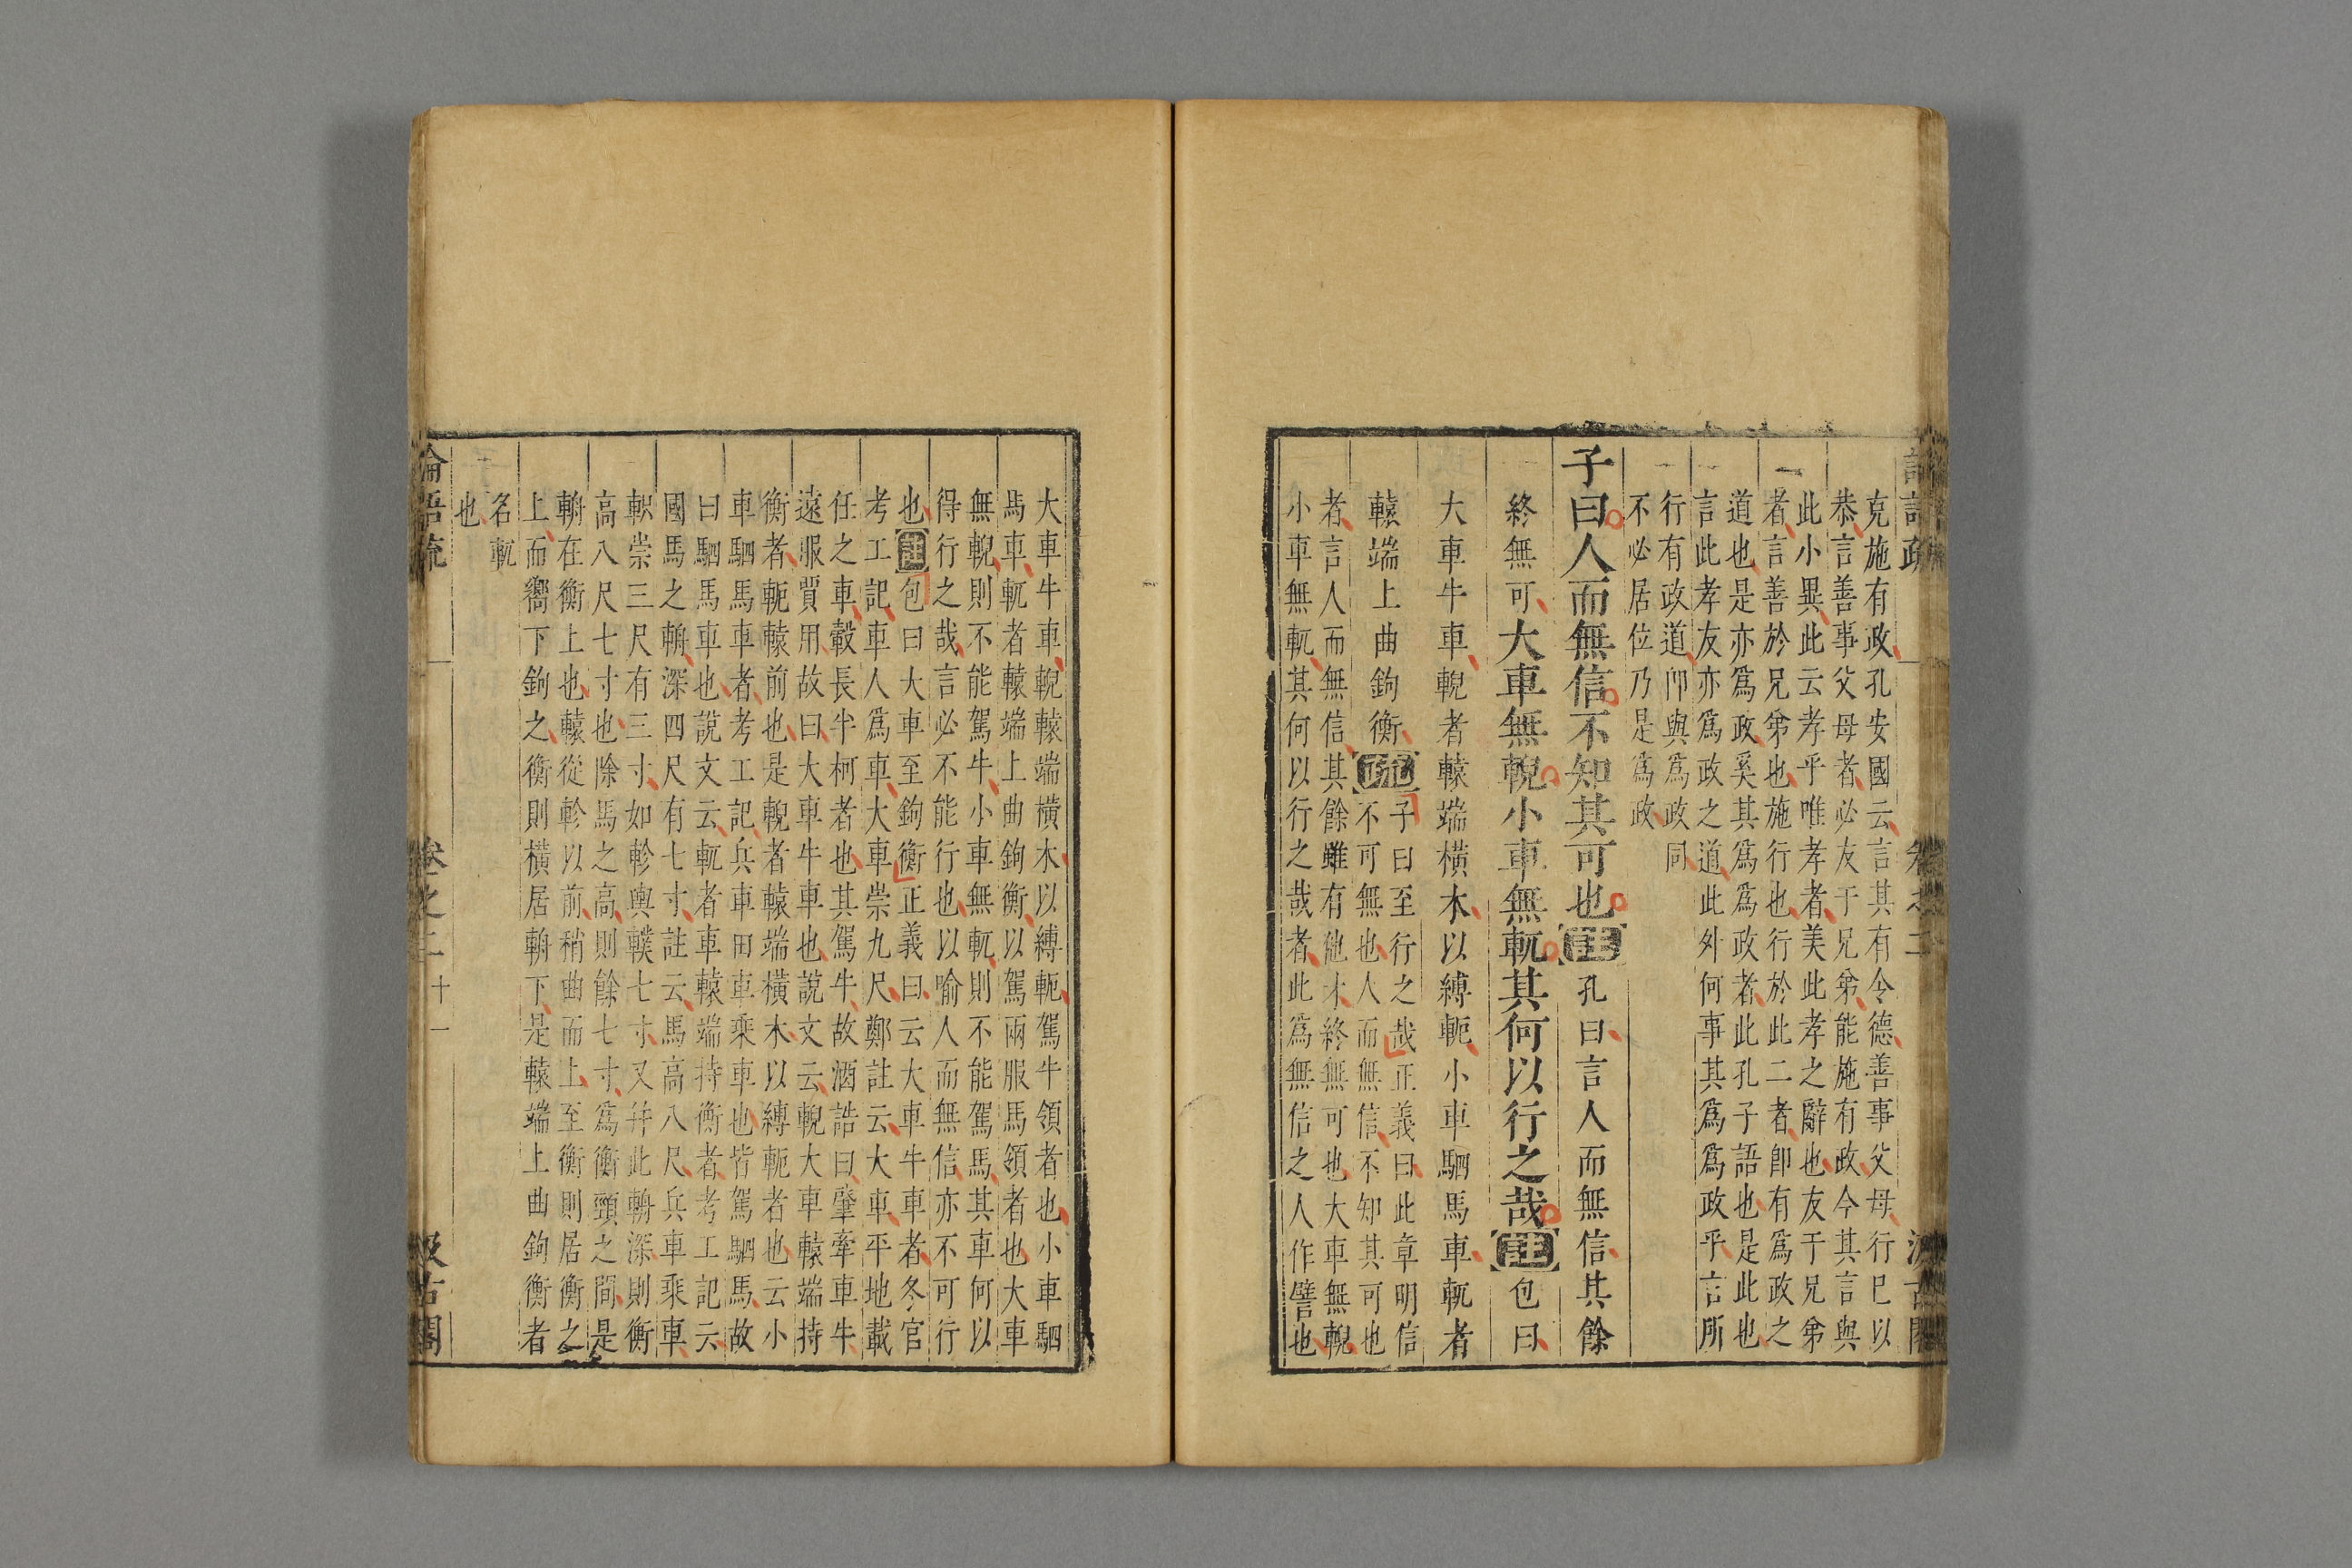 克施有政孔安國云言其有令德善事父母行已以
恭言善事父母者必友于兄弟能施有政今其言與
此小異此云孝乎唯孝者美此孝之辭也友于兄弟
者言善於兄弟也施行也行於此二者卽有爲政之
道也是亦爲政奚其爲爲政者此孔子語也是此也
言此孝友亦爲政之道此外何事其爲爲政乎言所
行有政道卽與爲政同
不必居位乃是爲政
子曰人而無信不知其可也註孔曰言人而無信其餘
終無可大車無輗小車無軏其何以行之哉註包曰
大車牛車輗者轅端橫木以縛軛小車駟馬車軏者
轅端上曲鉤衡疏
子曰至行之哉正義曰此章明信
不可無也人而無信不知其可也
者言人而無信其餘雖有他才終無可也大車無輗
小車無軏其何以行之哉者此爲無信之人作譬也
大車牛車輗轅端橫木以縛軛駕牛領者也小車駟
馬車軏者轅端上曲鉤衡以駕兩服馬領者也大車
無輗則不能駕牛小車無軏則不能駕馬其車何以
得行之哉言必不能行也以喻人而無信亦不可行
也註包曰大車至鉤衡正義曰云大車牛車者冬官
考工記車人爲車大車崇九尺鄭註云大車平地載
任之車轂長半柯者也其駕牛故酒誥曰肇牽車牛
遠服賈用故曰大車牛車也說文云輗大車轅端持
衡者軛轅前也是輗者轅端橫木以縛軛者也云小
車駟馬車者考工記兵車田車乘車也皆駕駟馬故
曰駟馬車也說文云軏者車轅端持衡者考工記云
國馬之輈深四尺有七寸註云馬高八尺兵車乘車
軹崇三尺有三寸如軫與轐七寸又幷此輈深則衡
高八尺七寸也除馬之高則餘七寸爲衡頸之間是
輈在衡上也轅從軫以前稍曲而上至衡則居衡之
上而嚮下鉤之衡則橫居輈下是轅端上曲鉤衡者
名軏
也
論語疏 卷之二 十一 汲古閣